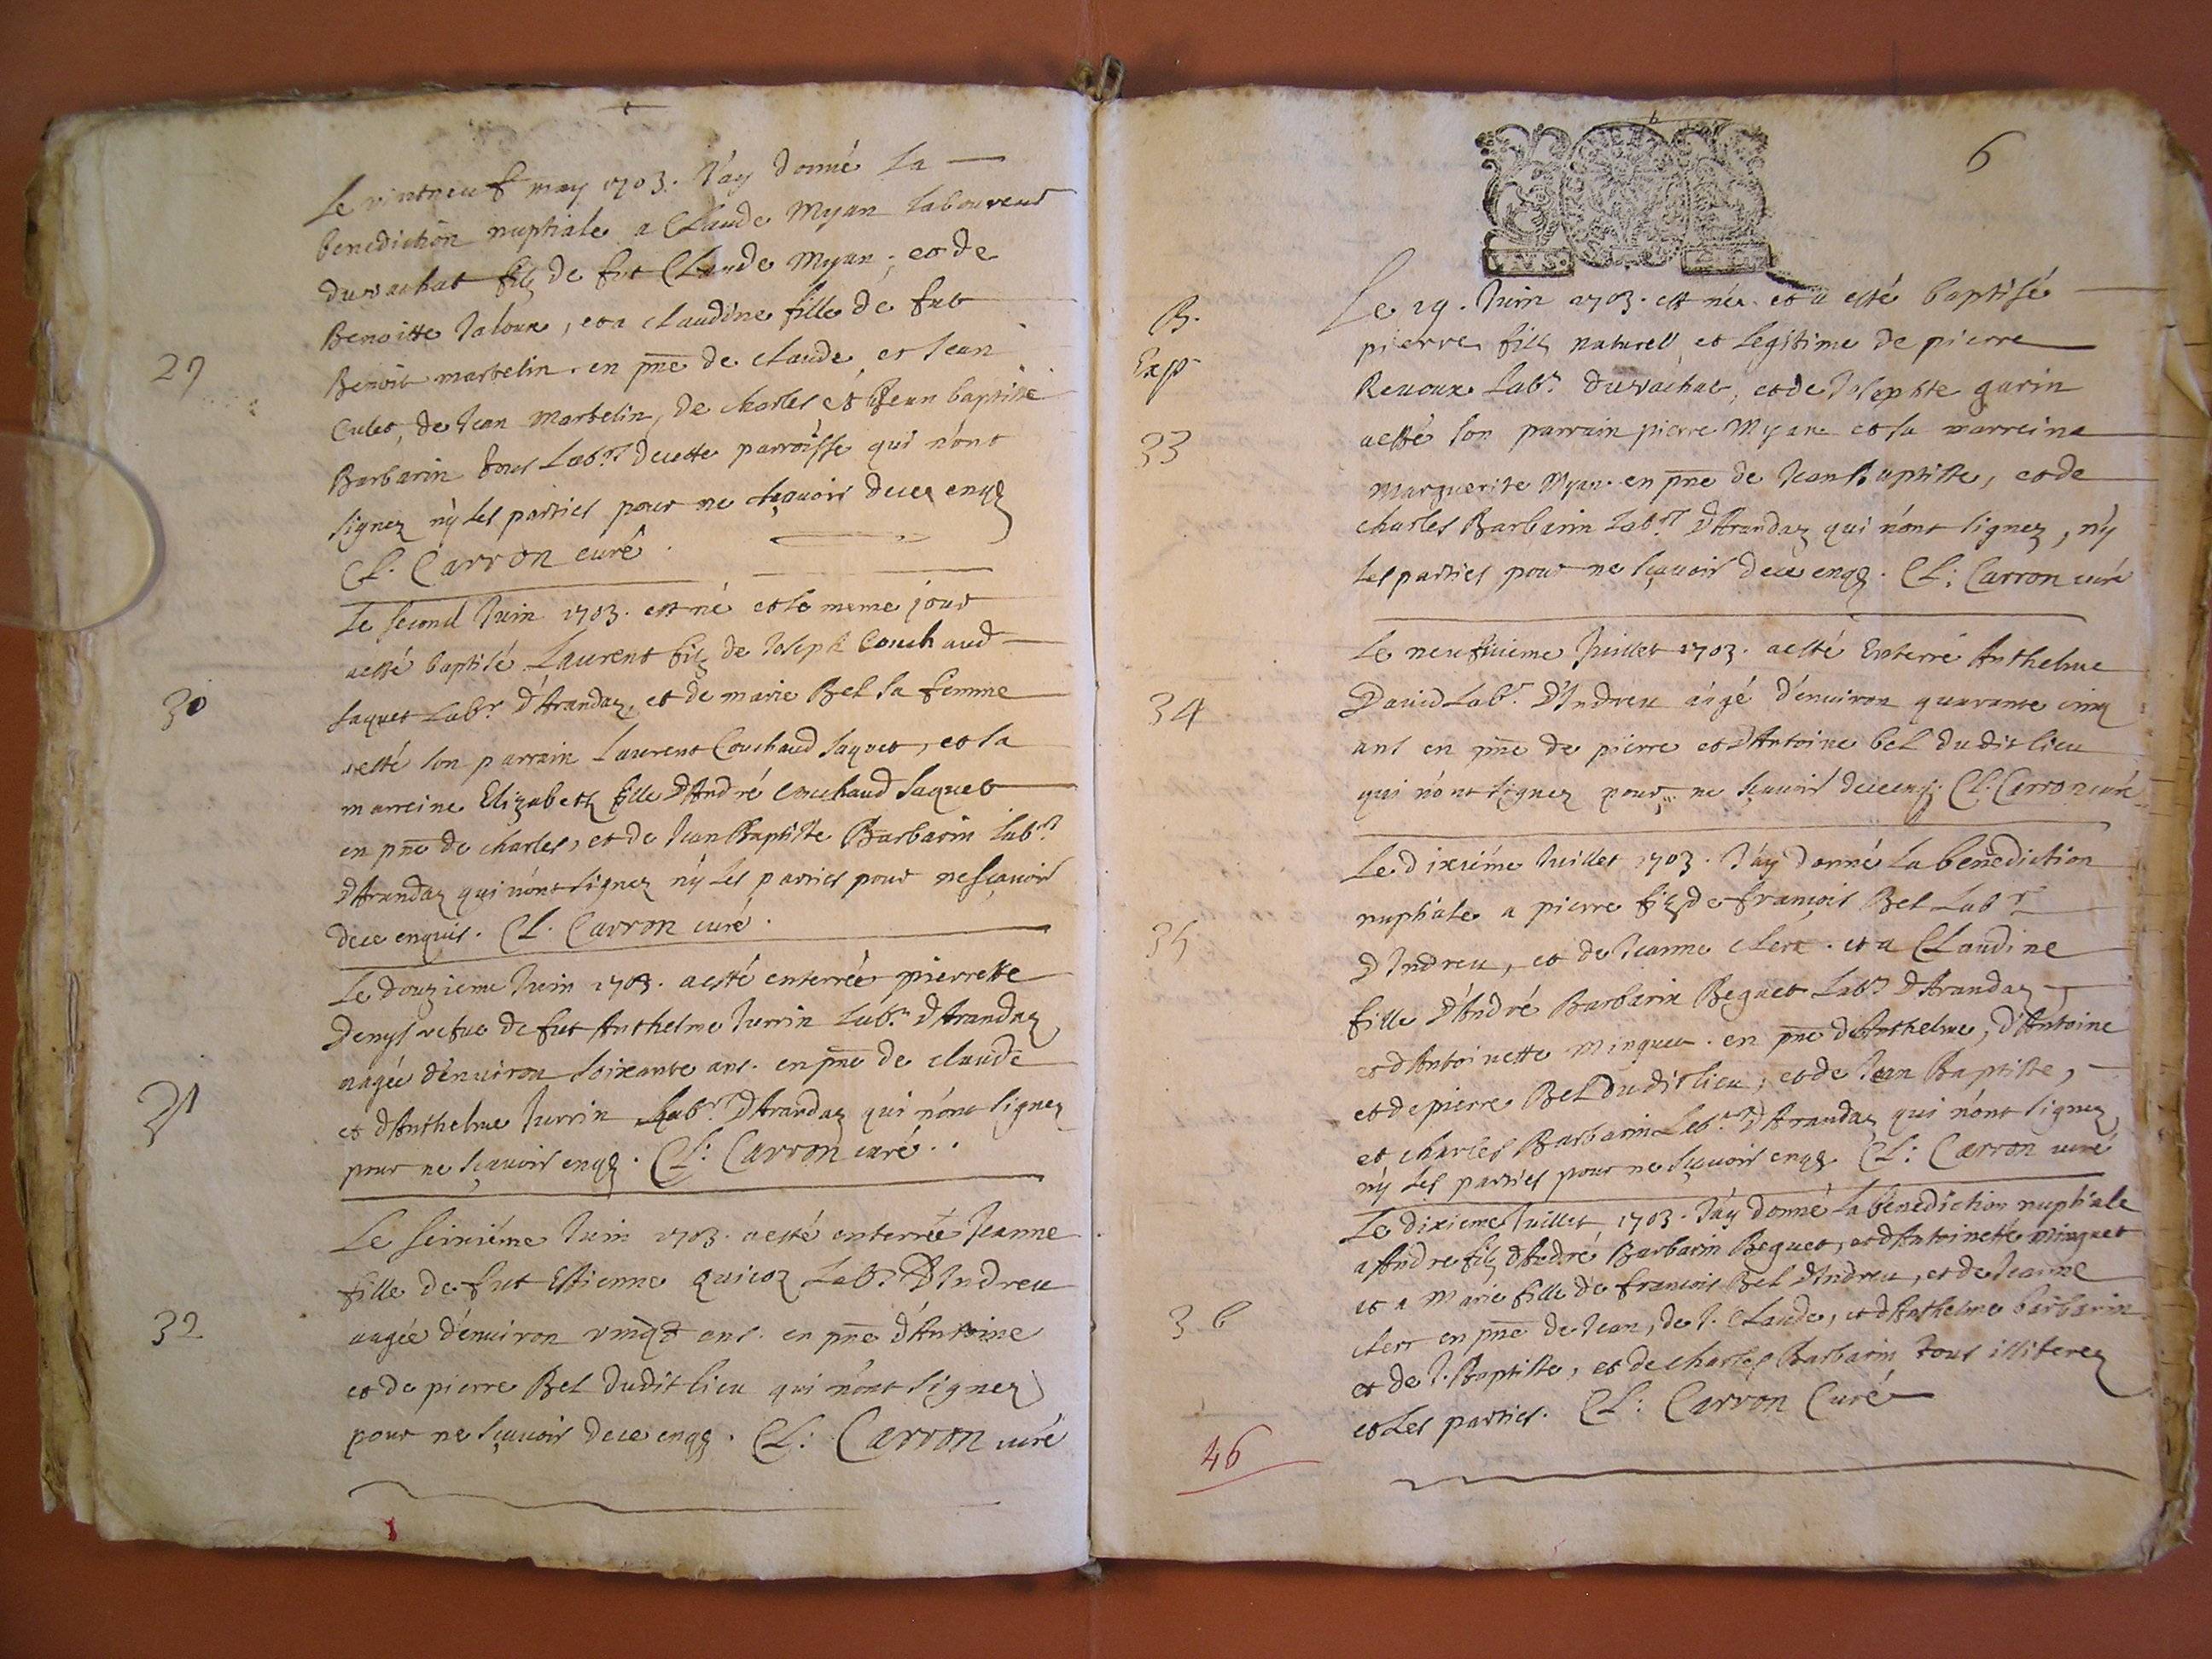 Le vintneuf may 1703. J'ay donné La
benediction nuptiale a Claude Myan Laboureur
du vachat filz de fut Claude Myan, et de
Benoitte Jaloux, et a claudine fille de fut
29
Benoit martelin. en pñe de claude et Jean
Culet, de Jean Martelin, de charles et Jean baptiste
Barbarin tous Labrs decette parroisse qui n'ont
signez n'y Les parties pour ne sçavoir dece enqs
CL. Carron curé.
Le second Juin 1703. est né et le meme jour
aesté baptisé Laurent filz de Joseph Couchaud
30
Saquet Labr. D'Arandaz, et de marie Bel sa femme
aesté son parrain Laurent Couchaud Saquet, et sa
marreine Elizabeth fille D'André Couchaud Saquet
en pñe de charles, et de Jean Baptiste Barbarin Labrs
D'Arandaz qui n'ont signez n'y Les parties pour ne sçavoir
dece enquis. CL. Carron curé.
Le douzieme Juin 1703. aesté enterrée pierrette
Denys vefue de fut Anthelme Jurrin Labr. D'Arandaz
aagée d'enuiron soixante ans. en pñe de claude
31
et d'Anthelme Jurrin Labrs D'Arandaz qui n'ont signez
pour ne sçavoir enqs. CL: Carron curé..
Le seiziéme Juin 1703. aesté enterrée Jeanne
fille de fut Estienne Quicoz Labr. D'Indreu
32
aagée d'enuiron vingt ans. en pñe d'Antoine
et de pierre Bel dudit lieu qui n'ont signez
pour ne sçavoir dece enqs. CL: Carron curé
6
Le 29. Juin 1703. est né et a esté baptisé
B.
pierre filz naturell et Legitime de pierre
Exp
Reuoux Labr. du vachat, et de Josephte garin
33
aesté son parrain pierre Myan et sa marreine
Marguerite Myan. en pñe de Jean Baptiste, et de
charles Barbarin Labrs D'Arandaz qui n'ont signez, n'y
Les parties pour ne sçavoir dece enqs. CL: Carron curé
Le neufuieme Juillet 1703. aesté Enterré Anthelme
34
David Labr. D'Indreu aagé d'enuiron quarante cinq
ans en pñe de pierre et d'Antoine bel dudit lieu
qui n'ont signez pour ne sçavoir dece enq. CL. Carron curé
Le dixiéme Juillet 1703. J'ay donné La benediction
nuptiale a pierre filz de françois Bel Labr
35
D'Indreu, et de Jeanne clerc. et a Claudine
fille D'André Barbarin Beguet Labr. D'Arandaz
et d'Antoinette minguet. en pñe d'Anthelme, d'Antoine
et de pierre Bel dudit lieu, et de Jean Baptiste,
et charles Barbarin Labrs D'Arandaz qui n'ont signez
n'y Les parties pour ne sçavoir enqs CL: Carron curé
Le dixieme Juillet 1703. J'ay donné La benediction nuptiale
a Andre filz d'André Barbarin Beguet, et d'Antoinette minguet
et a Marie fille de françois Bel D'Indreu, et de Jeanne
36
clerc en pñe de Jean, de J. Claude, et d'Anthelme barbarin
et de J. Baptiste, et de charles Barbarin tous illiterez
et Les parties. CL: Carron Curé
46